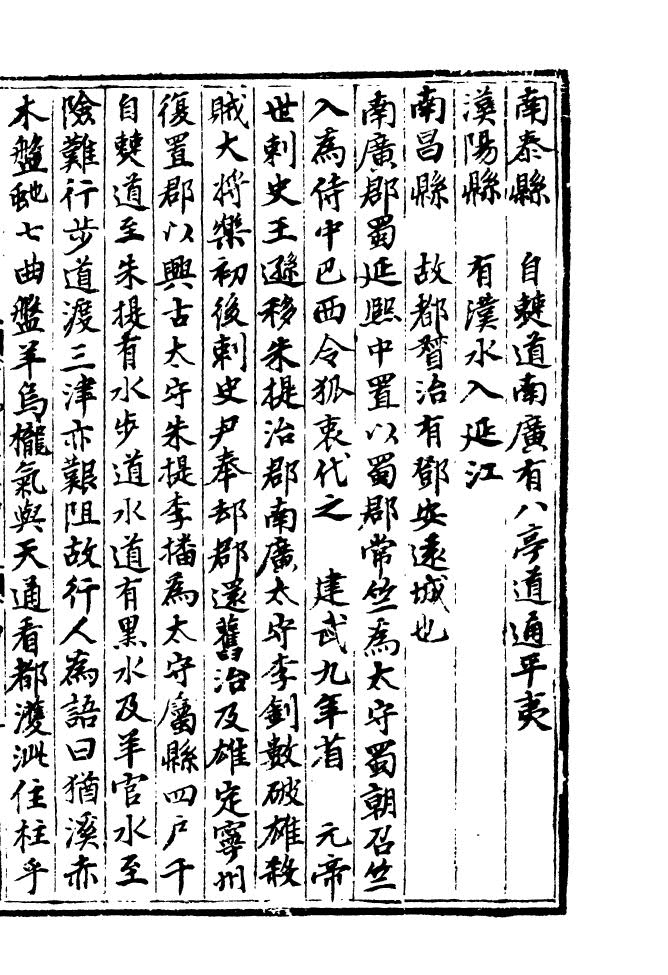 南秦縣　自僰道南廣有八亭道通平夷
漢陽縣　有漢水入延江
南昌縣　故都督治有鄧安遠城也
南廣郡蜀延熙中置以蜀郡常竺為太守蜀朝召竺
入為侍中巴西令狐衷代之　建武九年省　元帝
世刺史王遜移朱提治郡南廣太守李釗數破雄殺
賊大將樂初後刺史尹奉却郡還舊治及雄定寧州
復置郡以興古太守朱提李播為太守屬縣四戶千
自僰道至朱提有水步道水道有黑水及羊官水至
險難行步道渡三津亦艱阻故行人為語曰猶溪赤
木盤虵七曲盤羊烏櫳氣與天通看都濩泚住柱乎